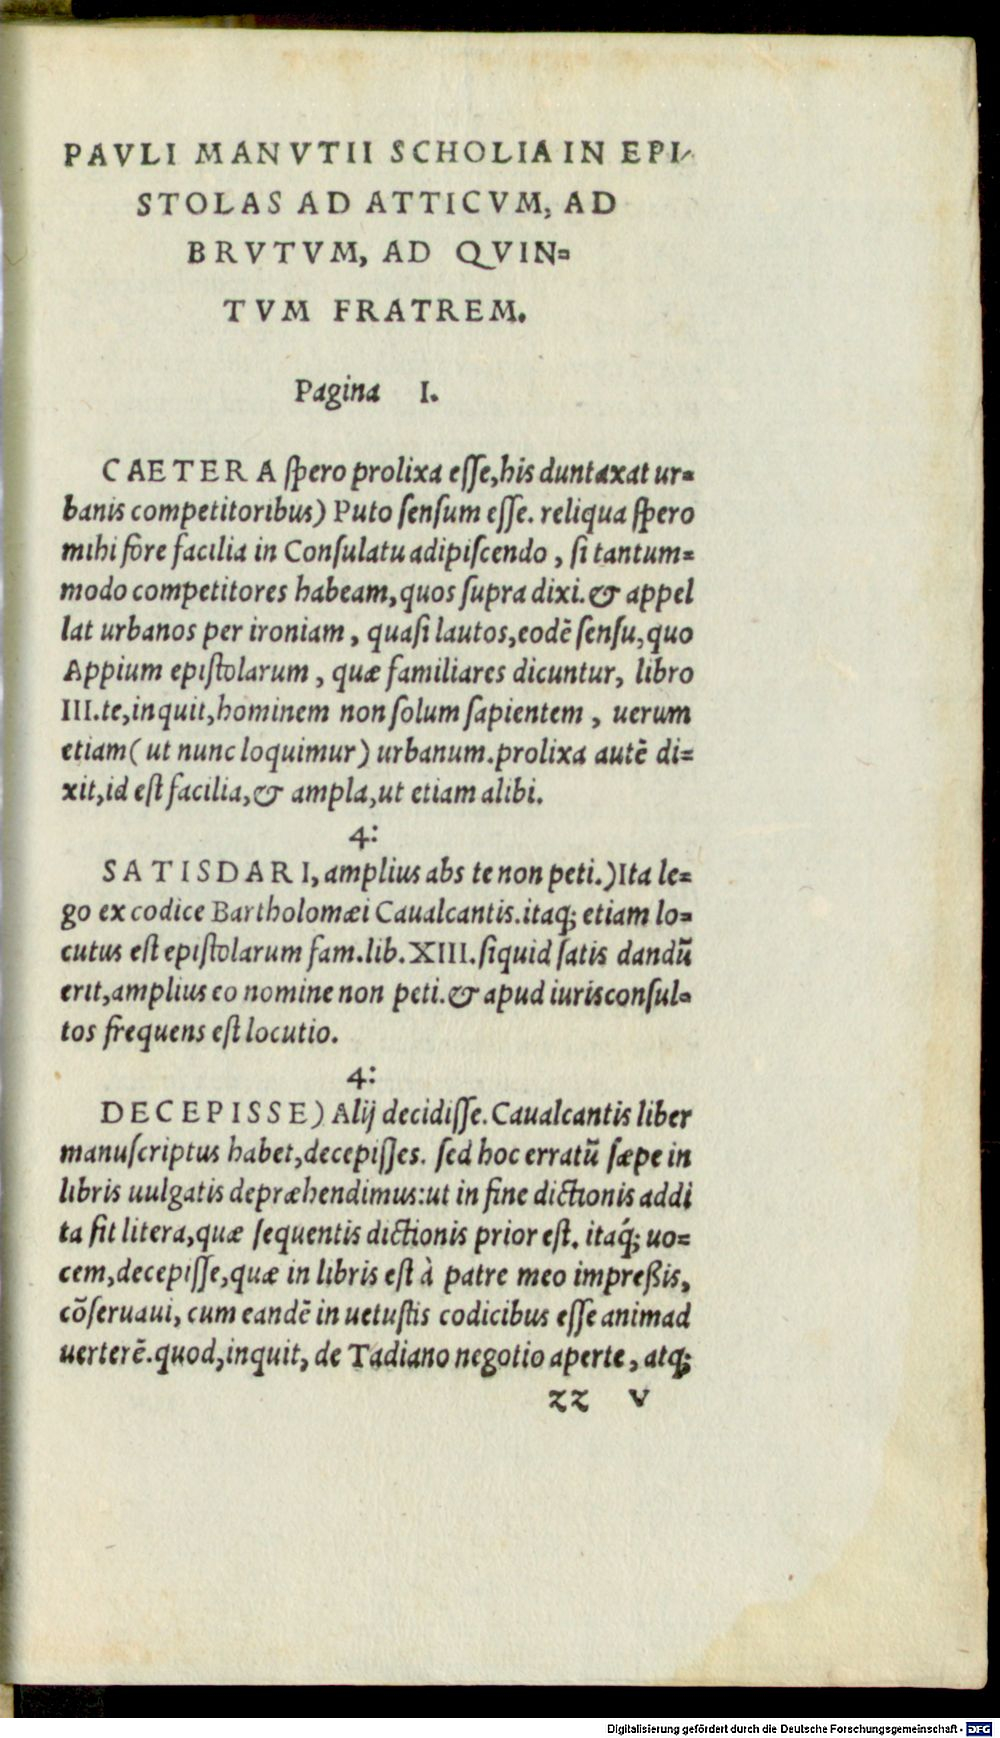 PAVLI MANVTII SCHOLIA IN EPI-
STOLAS AD ATTICVM, AD
BRVTVM, AD QVIN=
TVM FRATREM.
Pagina I.
CAETERA ſpero prolixa eſſe, his duntaxat ur=
banis competitoribus) Puto ſenſum eſſe. reliqua ſpero
mihi fore facilia in Conſulatu adipiſcendo, ſi tantum=
modo competitores habeam, quos ſupra dixi. & appel
lat urbanos per ironiam, quaſi lautos, eodē ſenſu, quo
Appium epiſtolarum, quæ familiares dicuntur, libro
III. te, inquit, hominem non ſolum ſapientem, uerum
etiam (ut nunc loquimur) urbanum. prolixa autē di=
xit, id eſt facilia, & ampla, ut etiam alibi.
4:
SATISDARI, amplius abs te non peti.) Ita le=
go ex codice Bartholomæi Caualcantis. itaq; etiam lo=
cutus eſt epiſtolarum fam. lib. XIII. ſiquid ſatis dandū
erit, amplius eo nomine non peti. & apud iurisconſul=
tos frequens eſt locutio.
4:
DECEPISSE) Alij decidiſſe. Caualcantis liber
manuſcriptus habet, decepiſſes. ſed hoc erratū ſæpe in
libris uulgatis depræhendimus: ut in fine dictionis addi
ta ſit litera, quæ ſequentis dictionis prior eſt. itaq́; uo=
cem, decepiſſe, quæ in libris eſt à patre meo impreßis,
cōſeruaui, cum eandē in uetuſtis codicibus eſſe animad
uerterē. quod, inquit, de Tadiano negotio aperte, atq;
zz v
Digitalisierung gefördert durch die Deutsche Forschungsgemeinschaft - DFG